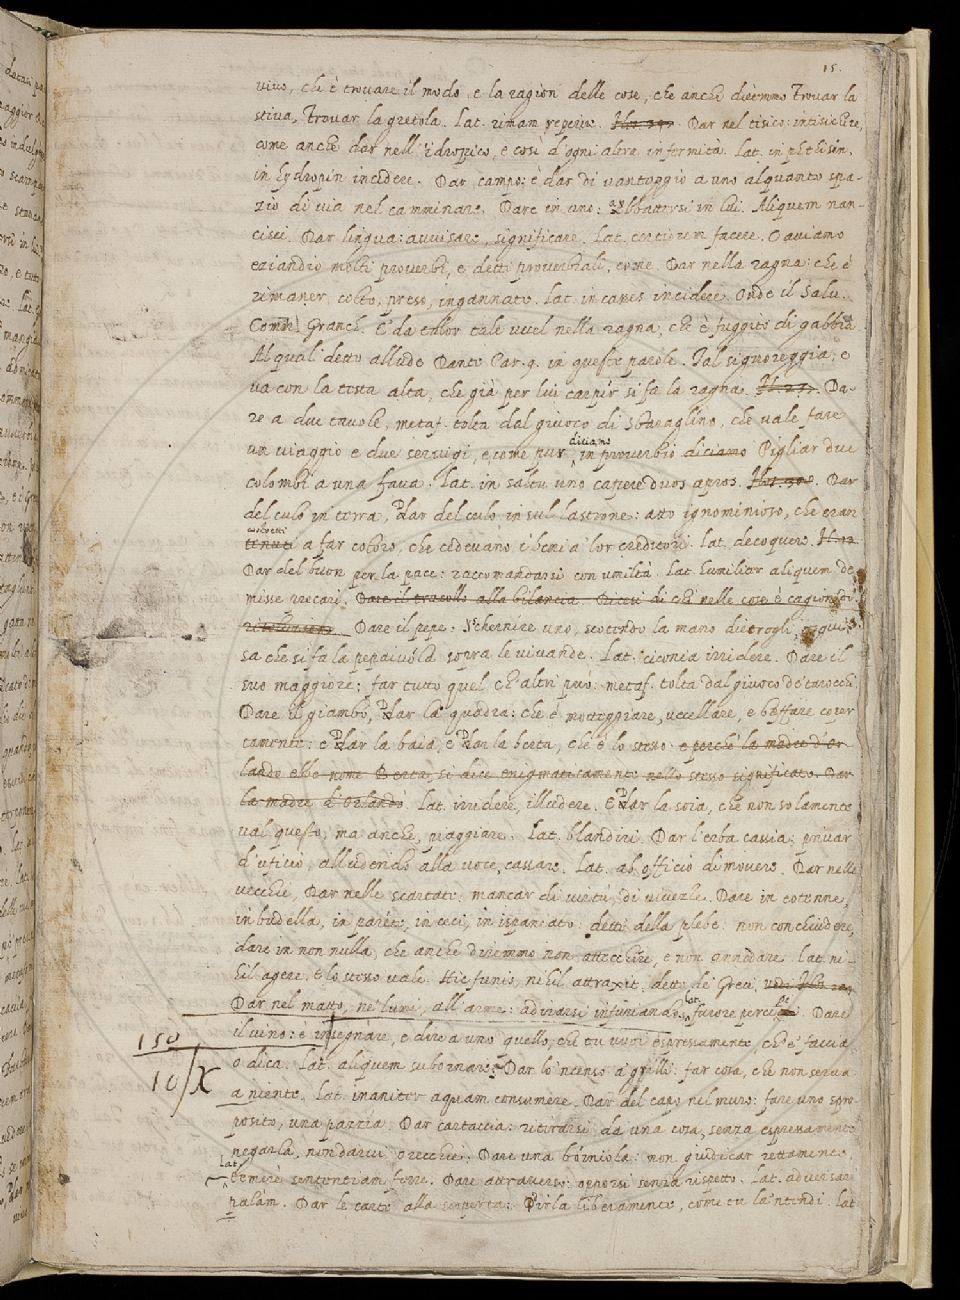 15.
vivo, che è trovare il modo, e la ragion delle cose, che anche dicemmo Trovar la
stiva, Trovar la gretola. Lat. rimam reperire. Dar nel tisico: intisichire,
come anche dar nell'idropico, e così d'ogni altra infermità. Lat. in phthisin,
in hydropin incidere. Dar campo: è dar di vantaggio a uno alquanto spa-
zio di via nel camminare. Dare in uno: abbattersi in lui. Aliquem nan-
cisci. Dar lingua: avvisare, significare. Lat. certiorem facere. Caviamo
eziandio molti proverbi, e detti proverbiali, come. Dar nella ragna: che è
rimaner colto, preso, ingannato. Lat. in casses incidere. Onde il Salv.
Granch. E dà talor tale uccel nella ragna, che è fuggito di gabbia.
Al qual detto allude Dante Par. 9. in queste parole. Tal signoreggia, e
va con la testa alta, che già per lui carpir si fa la ragna. Da-
re a due tavole, metaf. tolta dal giuoco di Sbaraglino, che vale fare
un viaggio e due servigi, e come pur diciamo in proverbio diciamo Pigliar due
colombi a una fava. Lat. in saltu uno capere duos apros. Dar
del culo in terra, Dar del culo in sul lastrone: atto ignominioso, che eran
costretti
tenuti a far coloro, che cedevano i beni a' lor creditori. Lat. decoquere.
Dar del buon per la pace: raccomandarsi con umiltà. Lat. humiliter aliquem de
misse precari. Dare il tracollo alla bilancia. Dicesi di chi nelle cose è cagion di
Dare il pepe: Schernire uno, scotendo la mano dietrogli, a gui-
sa che si fa la pepaiuola sopra le vivande. Lat. ciconia irridere. Dare il
suo maggiore: far tutto quel ch'altri può: metaf. tolta dal giuoco de' tarocchi.
Dare il giambo, Dar la quadra: che è motteggiare, uccellare, e beffare coper
tamente: e Dar la baia, e Dar la berta, che è lo stesso e perchè la madre d'Or
lando ebbe nome Berta, si dice enigmaticamente nello stesso significato. Dar
la madre d'Orlando. Lat. irridere, illudere. E Dar la soia, che non solamente
val questo, ma anche, piaggiare. Lat. blandiri. Dar l'erba cassia: privar
d'uficio, alludendo alla voce, cassare. Lat. ab officio dimovere. Dar nelle
vecchie, Dar nelle scartate: mancar di virtù, di vivezze. Dare in cotenne,
in budella, in parete, in ceci, in ispaneato: detti della plebe: non conchiudere,
dare in non nulla, che anche diremmo non attecchire, e non annodare. Lat. ni-
hil agere. E lo stesso vale. Hic funis nihil attraxit, detto de' Greci,
Dar nel matto, ne' lumi, all'arme: adirarsi infuriando. Lat. furore perciti. Dare
il vino: è insegnare, e dire a uno quello, che tu vuoi espressamente, ch'e' faccia,
o dica. Lat. aliquem subornare. Dar lo 'ncenso a' grilli: far cosa, che non serva
a niente. Lat. inaniter aquam consumere. Dar del capo nel muro: fare uno spro-
posito, una pazzia. Dar cartaccia: ritirarsi da una cosa, senza espressamente
negarla, non darvi orecchie. Dare una borniola: non giudicar rettamente.
Lat. temerè sententiam ferre. Dare attraverso: opporsi senza rispetto. Lat. adversare
palam. Dar le carte alla scoperta: Dirla liberamente, come tu la 'ntendi. Lat
150
10/X